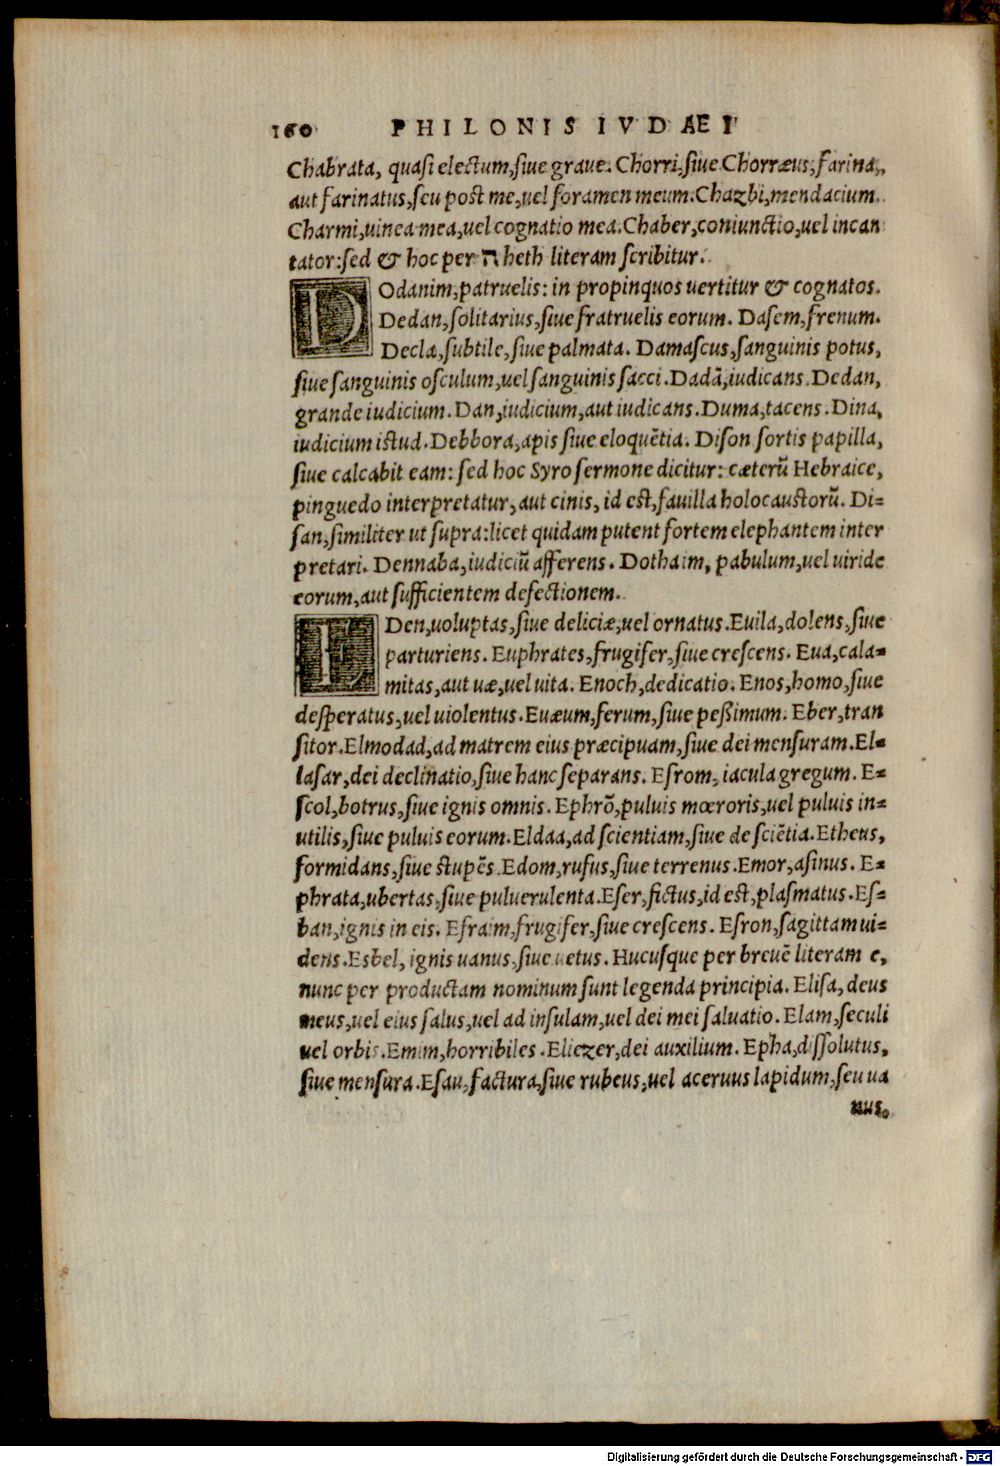 160 PHILONIS IVDAEI
Chabrata, quasi electum, siue graue. Chorri, siue Chorræus, farina,
aut farinatus, seu post me, uel foramen meum. Chazbi, mendacium.
Charmi, uinea mea, uel cognatio mea. Chaber, coniunctio, uel incan
tator: sed & hoc per ח heth literam scribitur.
DOdanim, patruelis: in propinquos uertitur & cognatos.
Dedan, solitarius, siue fratruelis eorum. Dasem, frenum.
Decla, subtile, siue palmata. Damascus, sanguinis potus,
siue sanguinis osculum, uel sanguinis sacci. Dadã, iudicans. Dedan,
grande iudicium. Dan, iudicium, aut iudicans. Duma, tacens. Dina,
iudicium istud. Debbora, apis siue eloquẽtia. Dison fortis papilla,
siue calcabit eam: sed hoc Syro sermone dicitur: cæterũ Hebraice,
pinguedo interpretatur, aut cinis, id est, fauilla holocaustorũ. Di=
san, similiter ut supra: licet quidam putent fortem elephantem inter
pretari. Dennaba, iudiciũ afferens. Dothaim, pabulum, uel uiride
eorum, aut sufficientem defectionem.
EDen, uoluptas, siue deliciæ, uel ornatus. Euila, dolens, siue
parturiens. Euphrates, frugifer, siue crescens. Eua, cala=
mitas, aut uæ, uel uita. Enoch, dedicatio. Enos, homo, siue
desperatus, uel uiolentus. Euæum, ferum, siue peßimum. Eber, tran
sitor. Elmodad, ad matrem eius præcipuam, siue dei mensuram. El=
lasar, dei declinatio, siue hanc separans. Esrom, iacula gregum. E=
scol, botrus, siue ignis omnis. Ephrõ, puluis mœroris, uel puluis in=
utilis, siue puluis eorum. Eldaa, ad scientiam, siue de sciẽtia. Etheus,
formidans, siue stupẽs. Edom, rufus, siue terrenus. Emor, asinus. E=
phrata, ubertas, siue puluerulenta. Eser, fictus, id est, plasmatus. Es=
ban, ignis in eis. Efraim, frugifer, siue crescens. Esron, sagittam ui=
dens. Esbel, ignis uanus, siue uetus. Hucusque per breuẽ literam e,
nunc per productam nominum sunt legenda principia. Elisa, deus
meus, uel eius salus, uel ad insulam, uel dei mei saluatio. Elam, seculi
uel orbis. Emim, horribiles. Eliezer, dei auxilium. Epha, dissolutus,
siue mensura. Esau, factura, siue rubeus, uel aceruus lapidum, seu ua
nus.
Digitalisierung gefördert durch die Deutsche Forschungsgemeinschaft - DFG